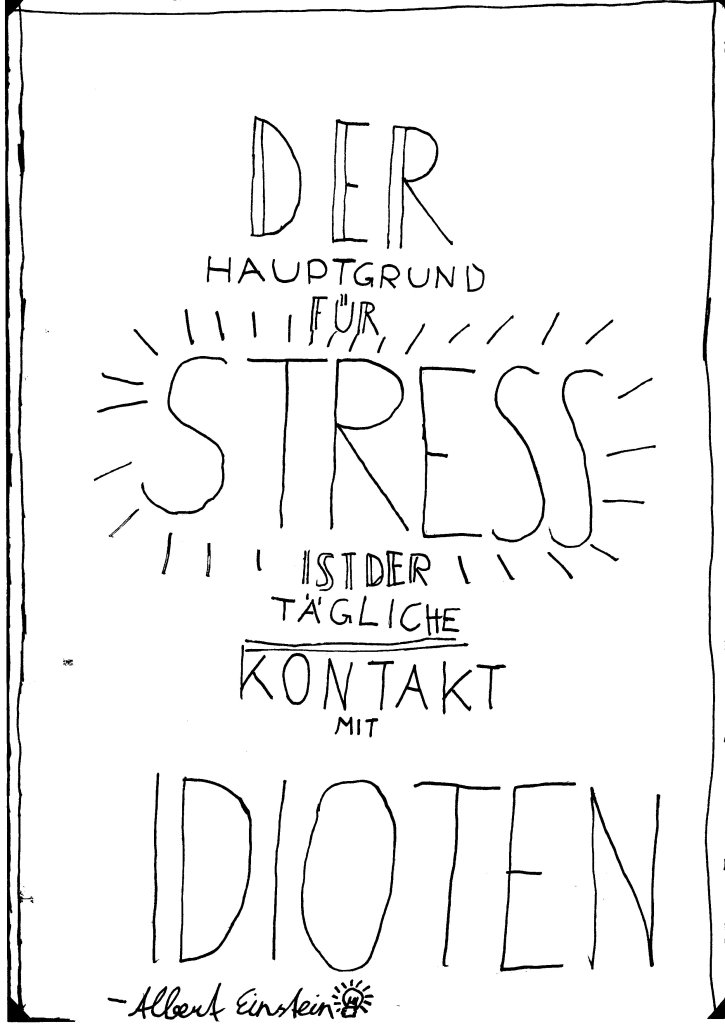 DER
HAUPTGRUND
FÜR
STRESS
IST DER
TÄGLICHE
KONTAKT
MIT
IDIOTEN
- Albert Einstein